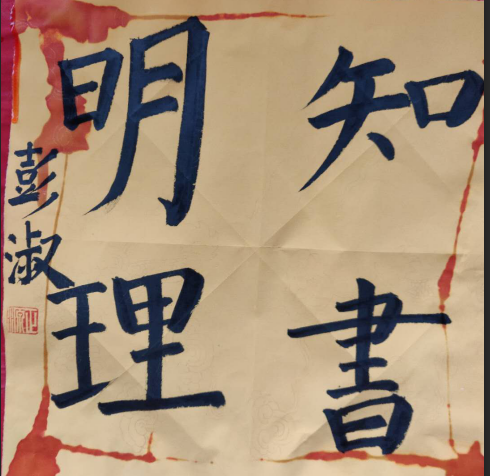 知書
明理
彭淑